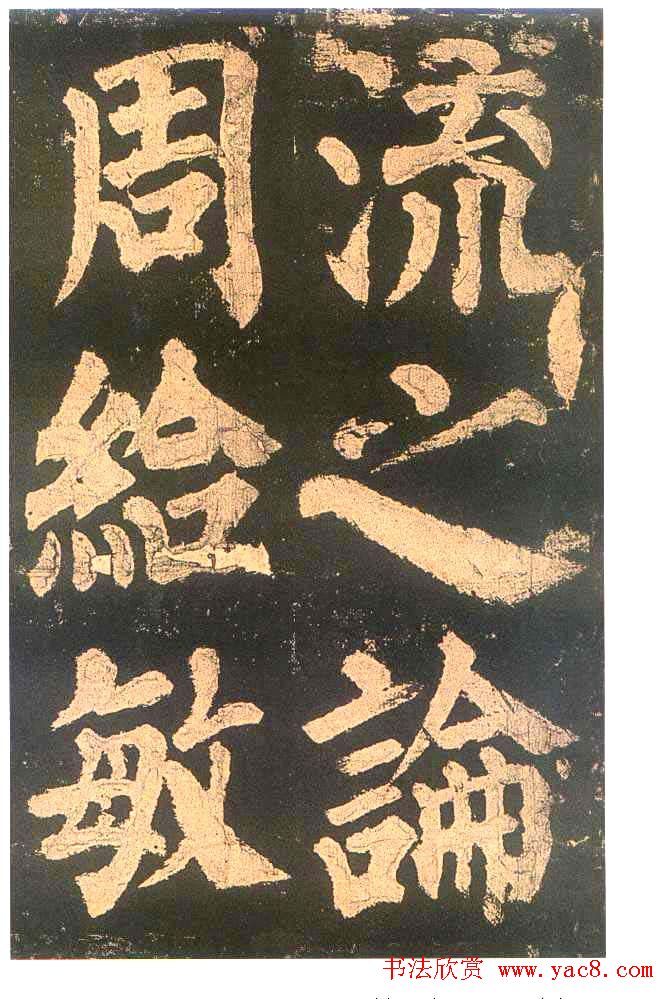 流之論
周給敏
书法欣赏 www.yac8.com